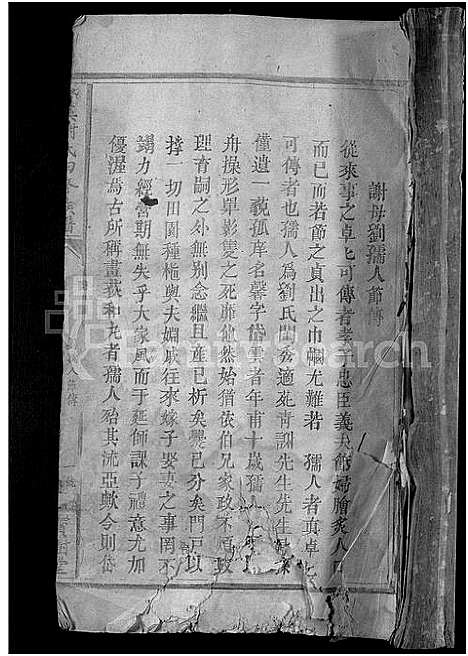 謝母劉孺人節傳
從來事之卓卓可傳者孝子忠臣義夫節婦膾炙人口
而已而若節之貞出之巾幗尤難若 孺人者真卓
可傳者也孺人為劉氏閨秀適先青謝先生先生
僅遺一視孤庠名馨字岱雲者年甫十歲孺人
舟操形單影隻之死靡他然始猶依伯兄家政不
理育嗣之外無別念繼且產已析矣爨已分矣門戶以
撐一切田園種植與夫姻戚往來嫁子娶妻之事罔不
竭力經營期無失乎大家風而于延師課子禮意尤加
優渥焉古所稱畫荻和丸者孺人殆其流亞歟今則岱